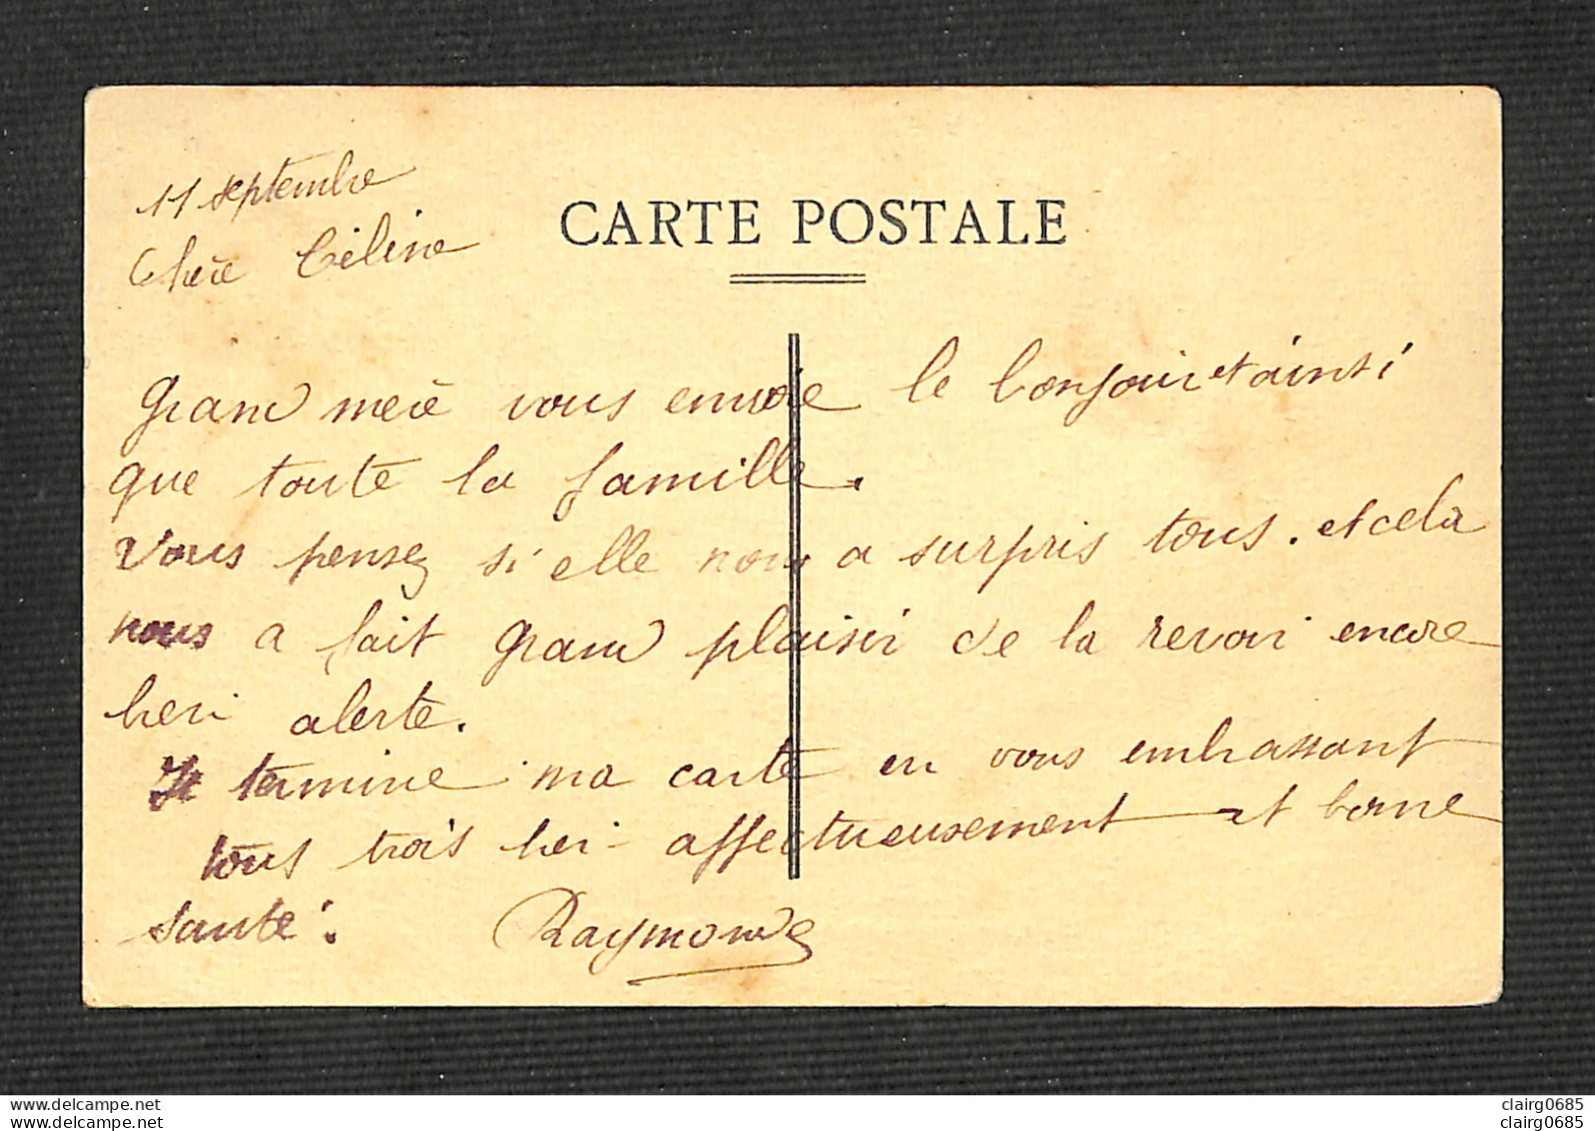 CARTE POSTALE
11 septembre
Chère Céline
Grand mère vous envoie le bonjour et ainsi
que toute la famille.
Vous pensez si elle nous a surpris tous. et cela
nous a fait grand plaisir de la revoir encore
bien alerte.
Je termine ma carte en vous embrassant
tous trois bien affectueusement et bonne
santé.
Raymonde
www.delcampe.net
My own election
clairg0685
clairg0685